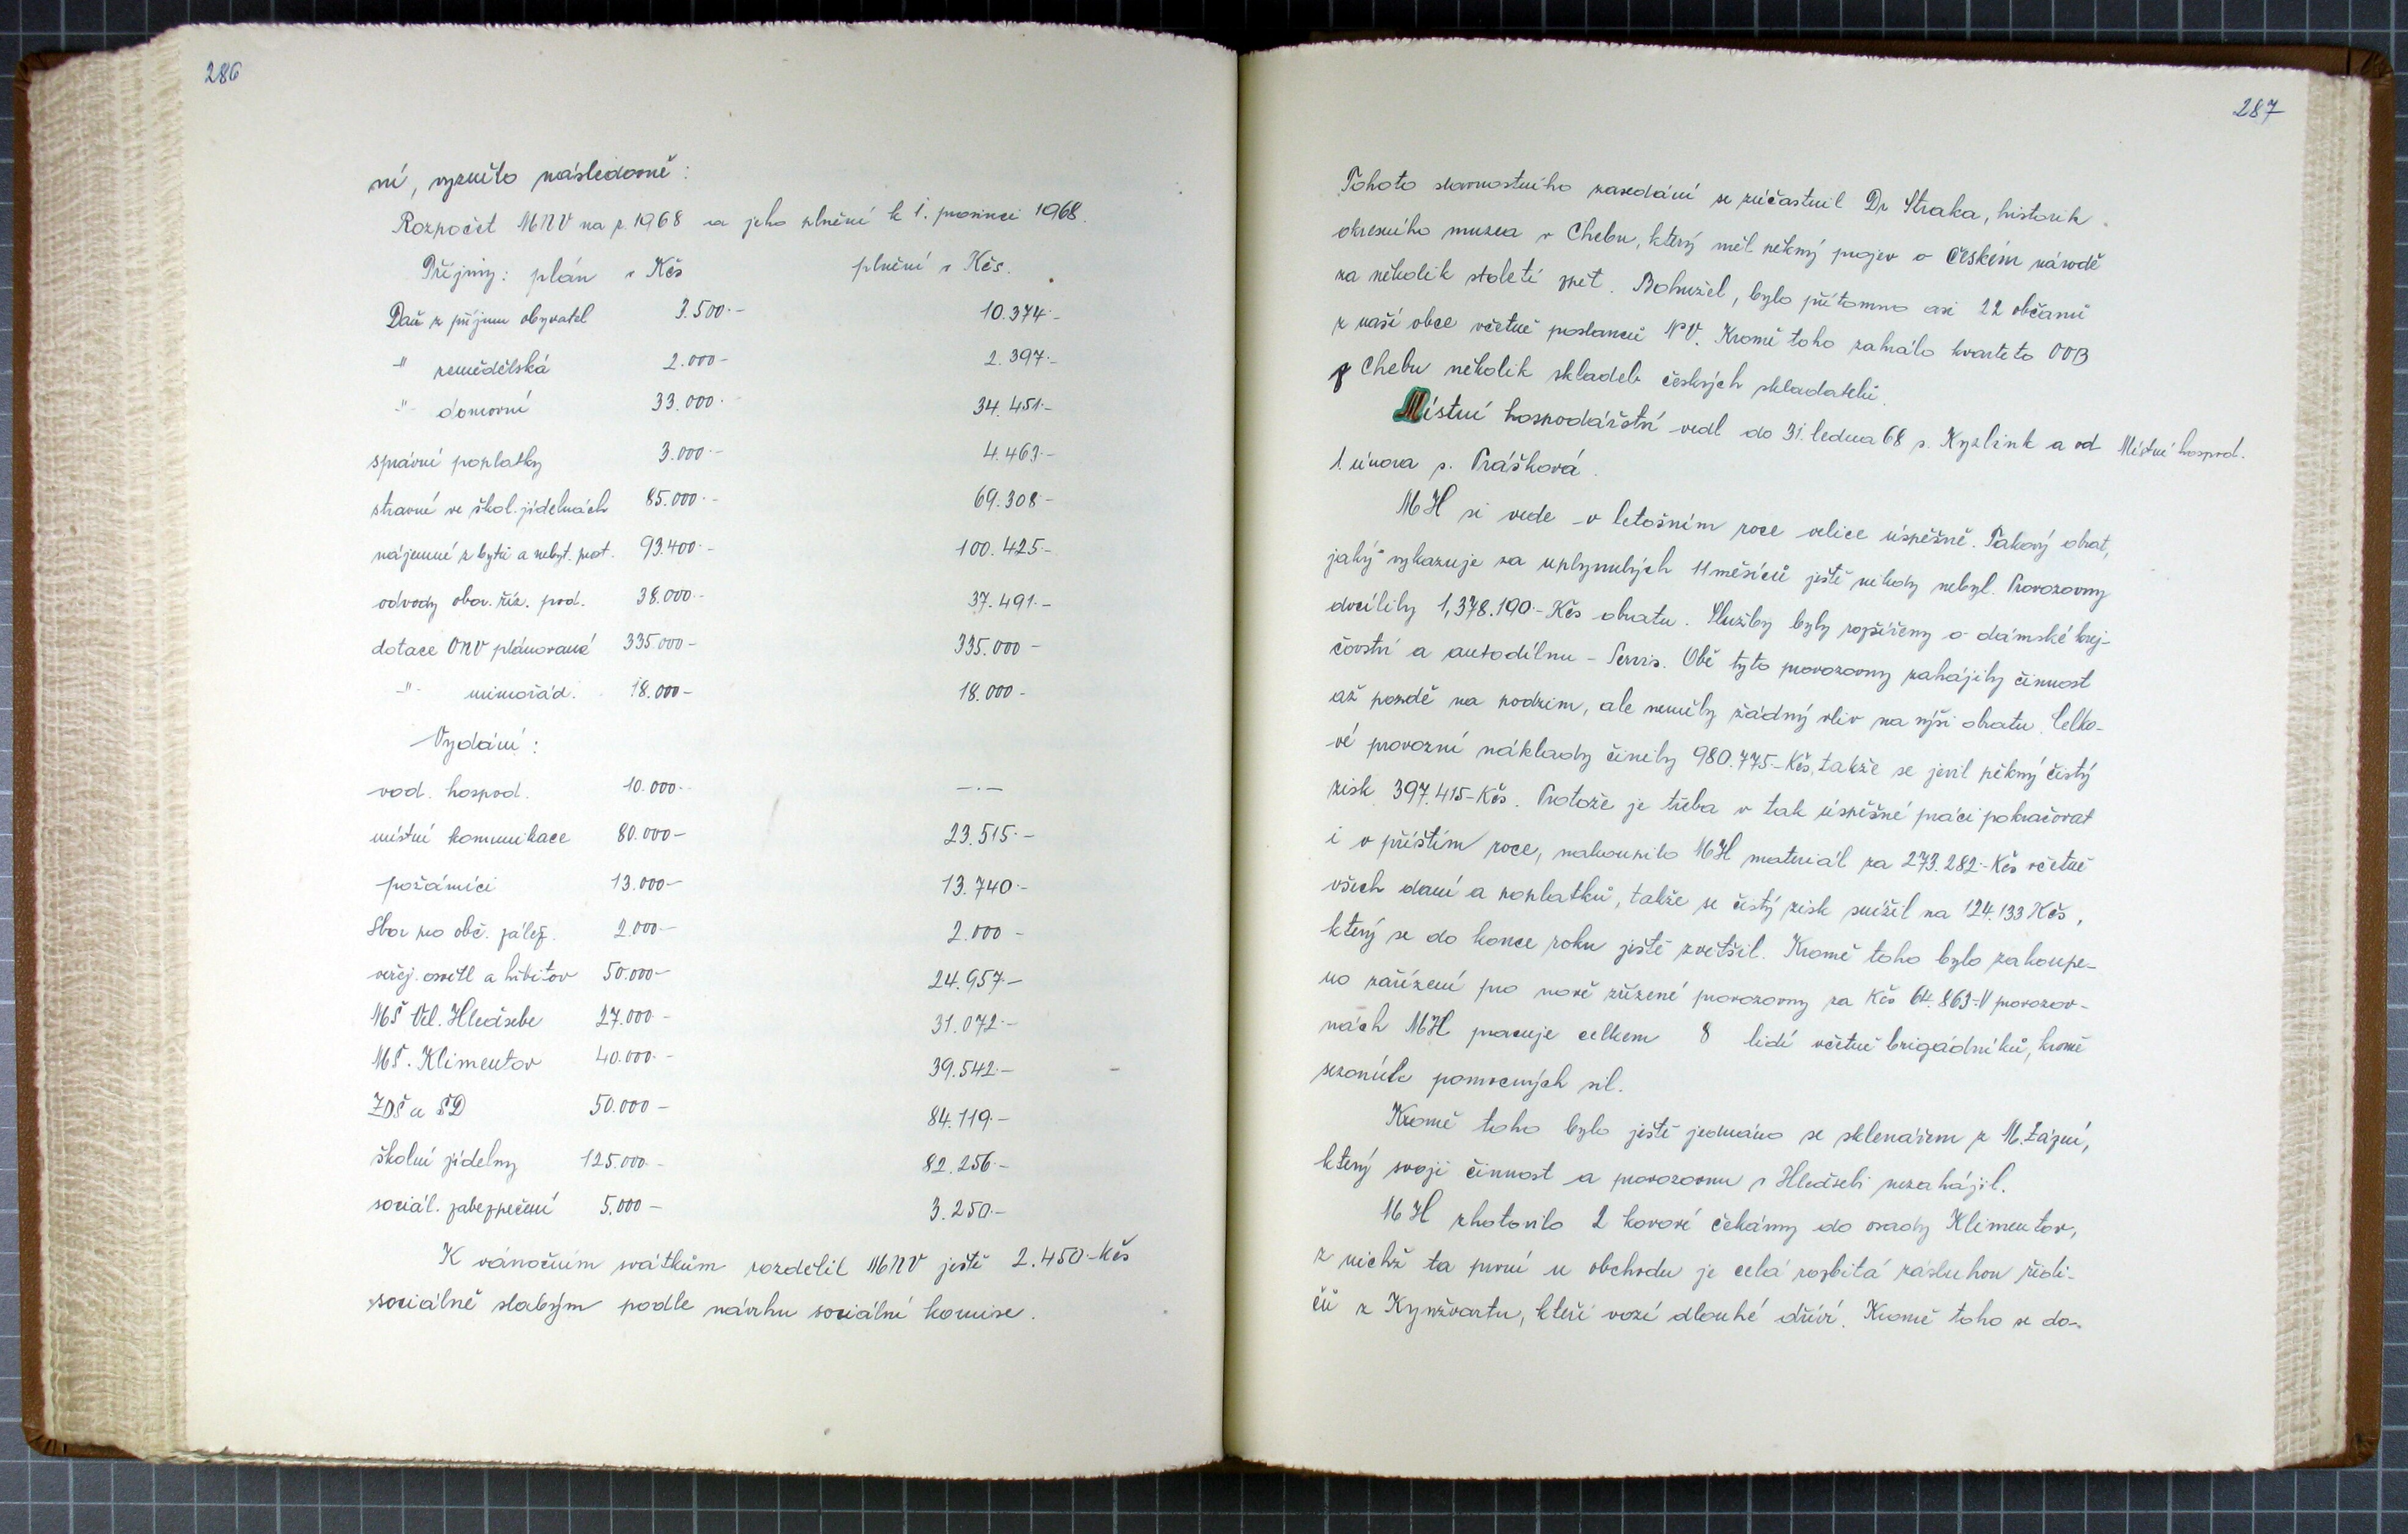 286
ní, vyznělo následovně:
Rozpočet MNV na r. 1968 a jeho plnění k 1. prosinci 1968.
Příjmy: plán v Kčs plnění v Kčs.
Daň z příjmu obyvatel 3.500.- 10.374.-
-"- zemědělská 2.000- 2.397.-
-"- domovní 33.000.- 34.451.-
správní poplatky 3.000.- 4.463.-
stravné ve škol. jídelnách 85.000.- 69.308.-
nájemné z bytů a nebyt. prost. 93.400.- 100.425.-
odvody obor. říz. pod. 38.000.- 37.491.-
dotace ONV plánované 335.000- 335.000-
-"- mimořád. 18.000- 18.000-
Vydání:
vod. hospod. 10.000.- -.-
místní komunikace 80.000- 23.515.-
požárníci 13.000- 13.740.-
Sbor pro obč. zálež. 2.000- 2.000-
veřej. osvětl a hřbitov 50.000- 24.957.-
MŠ Vel. Hleďsebe 27.000- 31.072.-
MŠ. Klimentov 40.000.- 39.542.-
ZDŠ a ŠD 50.000- 84.119.-
školní jídelny 125.000.- 82.256.-
sociál. zabezpečení 5.000- 3.250.-
K vánočním svátkům rozdělil MNV ještě 2.450-Kčs
sociálně slabým podle návrhu sociální komise.
287
Tohoto slavnostního zasedání se zúčastnil Dr Straka, historik
okresního muzea v Chebu, který měl pěkný projev o Českém národě
na několik století zpět. Bohužel, bylo přítomno asi 22 občanů
z naší obce včetně poslanců NV. Kromě toho zahrálo kvarteto OOB
z Chebu několik skladeb českých skladatelů.
Místní hospodářství vedl do 31. ledna 68 s. Kyzlink a od Místní hospod.
1. února s. Prášková.
MH si vede v letošním roce velice úspěšně. Takový obrat,
jaký vykazuje za uplynulých 11 měsíců ještě nikdy nebyl. Provozovny
docílily 1,378.190.-Kčs obratu. Služby byly rozšířeny o dámské krej-
čovství a autodílnu - Servis. Obě tyto provozovny zahájily činnost
až pozdě na podzim, ale neměly žádný vliv na výši obratu. Celko-
vé provozní náklady činily 980.775-Kčs, takže se jevil pěkný čistý
zisk 397.415-Kčs. Protože je třeba v tak úspěšné práci pokračovat
i v příštím roce, nakoupilo MH materiál za 273.282.-Kčs včetně
všech daní a poplatků, takže se čistý zisk snížil na 124.133 Kčs,
který se do konce roku ještě zvětšil. Kromě toho bylo zakoupe-
no zařízení pro nově zřízené provozovny za Kčs 64.863.-V provozov-
nách MH pracuje celkem 8 lidí včetně brigádníků, kromě
sezoních pomocných sil.
Kromě toho bylo ještě jednáno se sklenářem z M. Lázní,
který svoji činnost a provozovnu v Hleďsebi nezahájil.
MH zhotovilo 2 kovové čekárny do osady Klimentov,
z nichž ta první u obchodu je celá rozbitá zásluhou řidi-
čů z Kynžvartu, kteří vozí dlouhé dříví. Kromě toho se do-